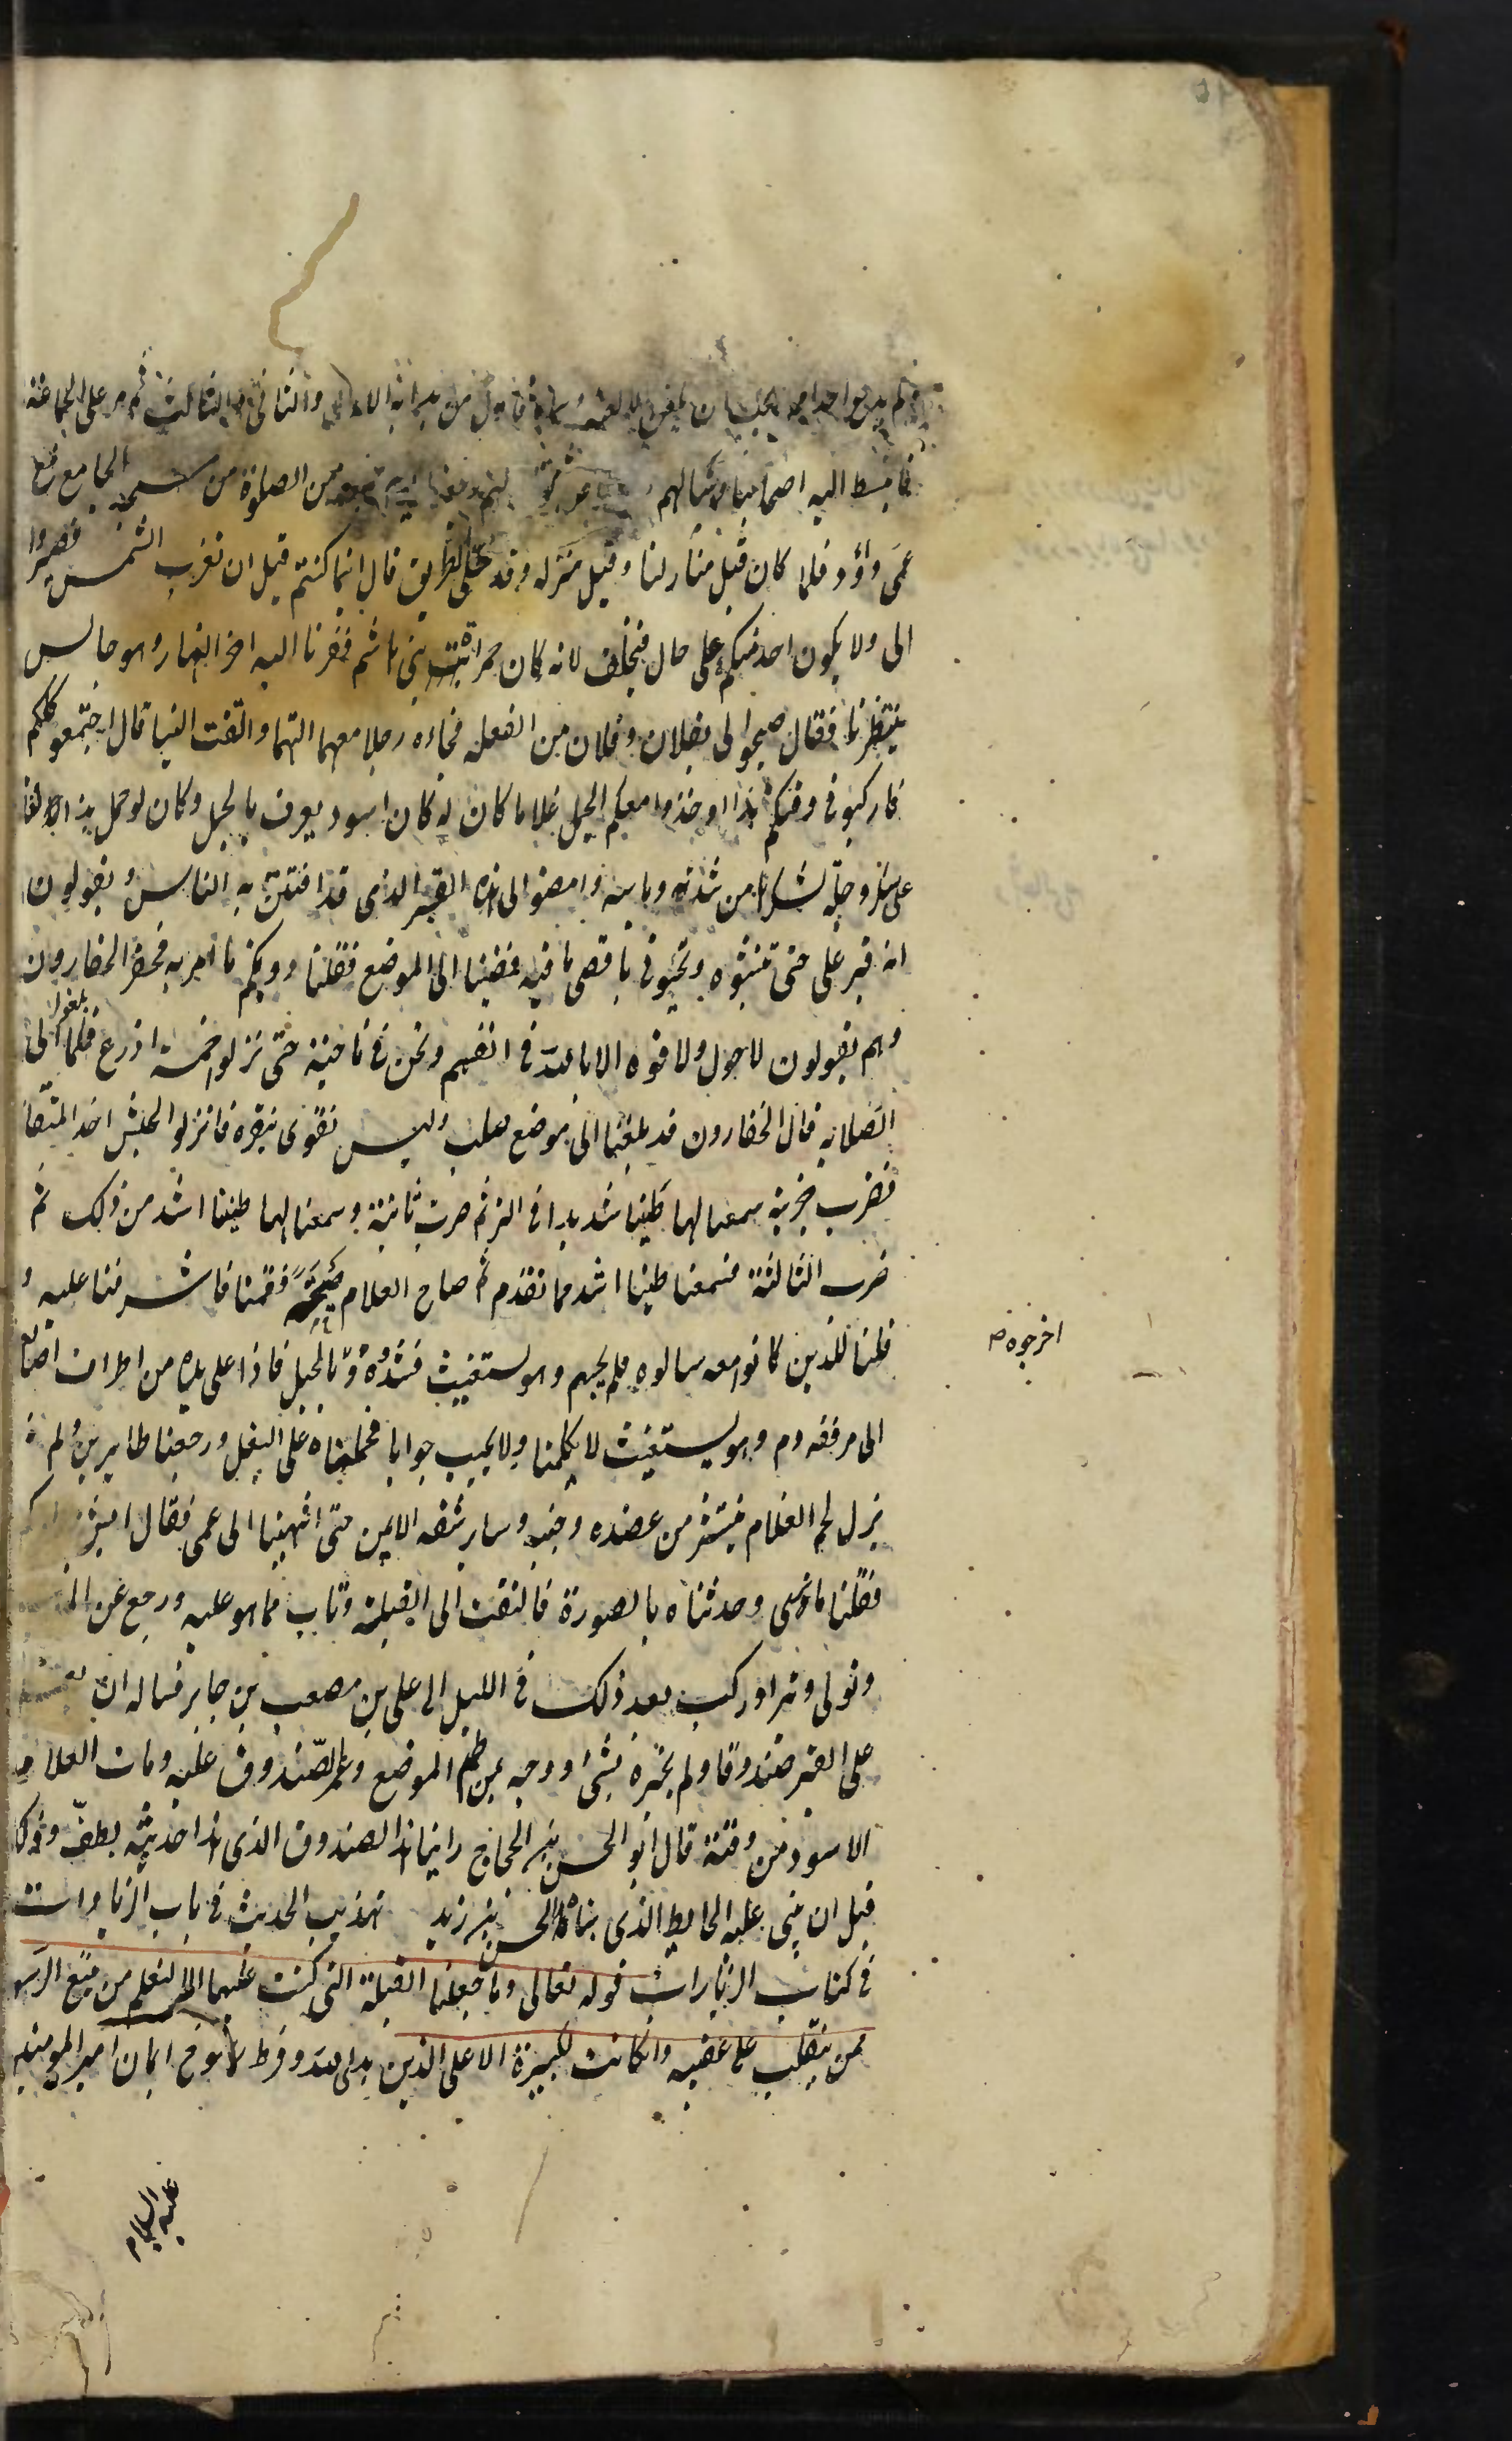 فانبسط اليه اصحابنا وسالهم من الصلوة من مسجد الجامع مع
عمى داؤد فلما كان قبل منازلنا وقبل منزله وقد خلى الطريق قال اينما كنتم قبل ان تغرب الشمس فصيروا
الى ولا يكون احد منكم على حال فيتخلف لانه كان جمرة بنى هاشم فصرنا اليه اخر النهار وهو جالس
ينتظرنا فقال صيحوا لى بفلان وفلان من الفعلة فجاءه رجلا معهما التهما والتفت الينا قال اجتمعوا كلكم
فاركبوا فى وقتكم هذا وخذوا معكم الجمل غلاما كان له كان اسود يعرف بالجمل وكان لو حمل هذا الغلام
على سكر دجلة لسكرها من شدته وباسه وامضوا الى هذا القبر الذى قد افتتن به الناس ويقولون
انه قبر على حتى تنبشوه وتجيئونى باقصى ما فيه فمضينا الى الموضع فقلنا دونكم ما امر به فحضر الحفارون
وهم يقولون لا حول ولا قوة الا بالله فى انفسهم ونحن فى ناحية حتى نزلوا خمسة اذرع فلما بلغوا الى
الصلابة قال الحفارون قد بلغنا الى موضع صلب وليس نقوى بنقره فانزلوا الحبشى اخذ المنقار
فضرب ضربة سمعنا لها طنينا شديدا فى البر ثم ضرب ثانية وسمعنا لها طنينا اشد من ذلك ثم
ضرب الثالثة فسمعنا طنينا اشد مما تقدم ثم صاح الغلام صيحة فقمنا فاشرفنا عليه و
قلنا للذين كانوا معه سالوه فلم يجبهم وهو يستغيث فشدوه بالحبل فاذا على يده من اطراف اصابع
اخرجوه ص
الى مرفقه دم وهو يستغيث لا يكلمنا ولا يجيب جوابا فحملناه على البغل ورجعنا طايرين ولم
يزل لحم الغلام ينتثر من عضده وجنبه وساير شقه الايمن حتى انتهينا الى عمى فقال ايش
فقلنا ما ترى وحدثناه بالصورة فالتفت الى القبلة وتاب مما هو عليه ورجع عن
وتولى وتبرا وركب بعد ذلك فى الليل الى على بن مصعب بن جابر فساله ان
على القبر صندوقا ولم يخبره بشئ ووجه بمن طم الموضع وعمر الصندوق عليه ومات الغلام
الاسود من وقته قال ابو الحسن بن الحجاج راينا هذا الصندوق الذى هذا حديثه لطيف وذلك
قبل ان يبنى عليه الحايط الذى بناه الحسن بن زيد تهذيب الحديث فى باب الزيادات
فى كتاب الزيارات قوله تعالى وما جعلنا القبلة التى كنت عليها الا لنعلم من يتبع الرسول
ممن ينقلب على عقبيه وان كانت لكبيرة الا على الذين هدى الله ايمان امير المومنين
عليه السلام